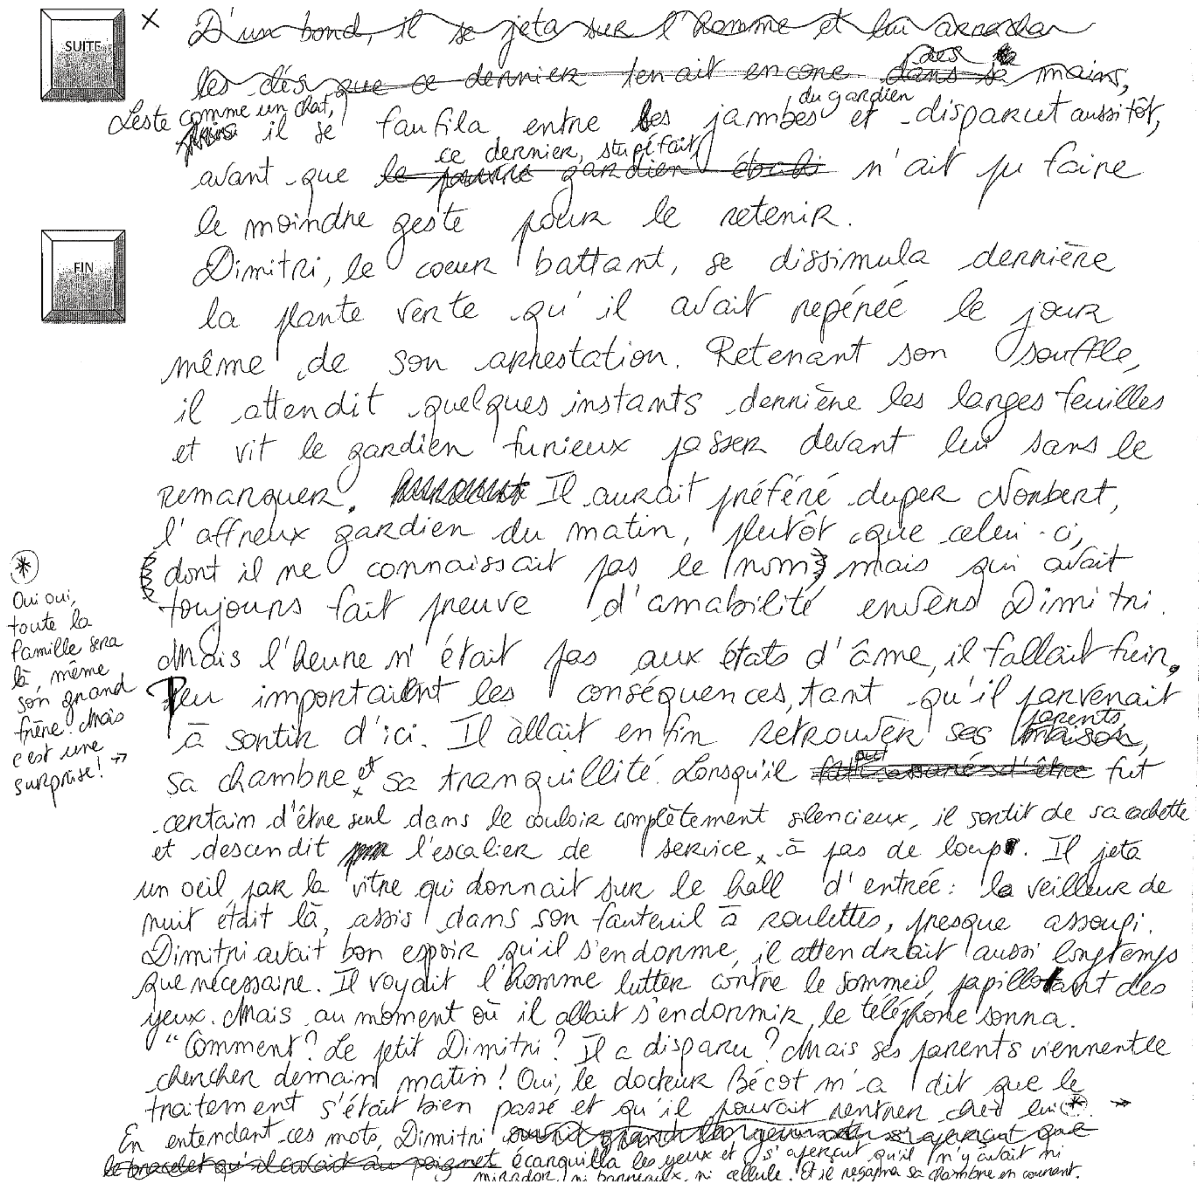 SUITE
x D'un bond, il se jeta sur l'homme et lui arracha
les dés que ce dernier tenait encore dans sa mains,
des
Leste comme un chat,
du gardien
Puis il se faufila entre les jambes et disparut aussitôt,
ce dernier, stupéfait,
avant que le pauvre gardien ébahi n'ait pu faire
le moindre geste pour le retenir.
FIN
Dimitri, le coeur battant, se dissimula derrière
la plante verte qu'il avait repérée le jour
même de son arrestation. Retenant son souffle,
il attendit quelques instants derrière les larges feuilles
et vit le gardien furieux passer devant lui sans le
remarquer. Il aurait préféré duper Norbert,
l'affreux gardien du matin, plutôt que celui-ci,
dont il ne connaissait pas le nom, mais qui avait
toujours fait preuve d'amabilité envers Dimitri.
Mais l'heure n'était pas aux états d'âme, il fallait fuir.
Peu importaient les conséquences, tant qu'il parvenait
à sortir d'ici. Il allait enfin retrouver ses maison,
parents,
sa chambre et sa tranquillité. Lorsqu'il fut
certain d'être seul dans le couloir complètement silencieux, il sortit de sa cachette
et descendit l'escalier de service, à pas de loup. Il jeta
un oeil par la vitre qui donnait sur le hall d'entrée : le veilleur de
nuit était là, assis dans son fauteuil à roulettes, presque assoupi.
Dimitri avait bon espoir qu'il s'endorme, il attendrait aussi longtemps
que nécessaire. Il voyait l'homme lutter contre le sommeil, papillotant des
yeux. Mais au moment où il allait s'endormir, le téléphone sonna.
"Comment ? Le petit Dimitri ? Il a disparu ? Mais ses parents viennent le
chercher demain matin ! Oui, le docteur Bécot m'a dit que le
traitement s'était bien passé et qu'il pouvait rentrer chez lui * . →
En entendant ces mots, Dimitri
le bracelet qu'il avait au poignet écarquilla les yeux et s'aperçut qu'il n'y avait ni
mirador, ni barreaux, ni cellule. Et il regagna sa chambre en courant.
*
Oui oui,
toute la
famille sera
là même
son grand
frère. Mais
c'est une
surprise ! →